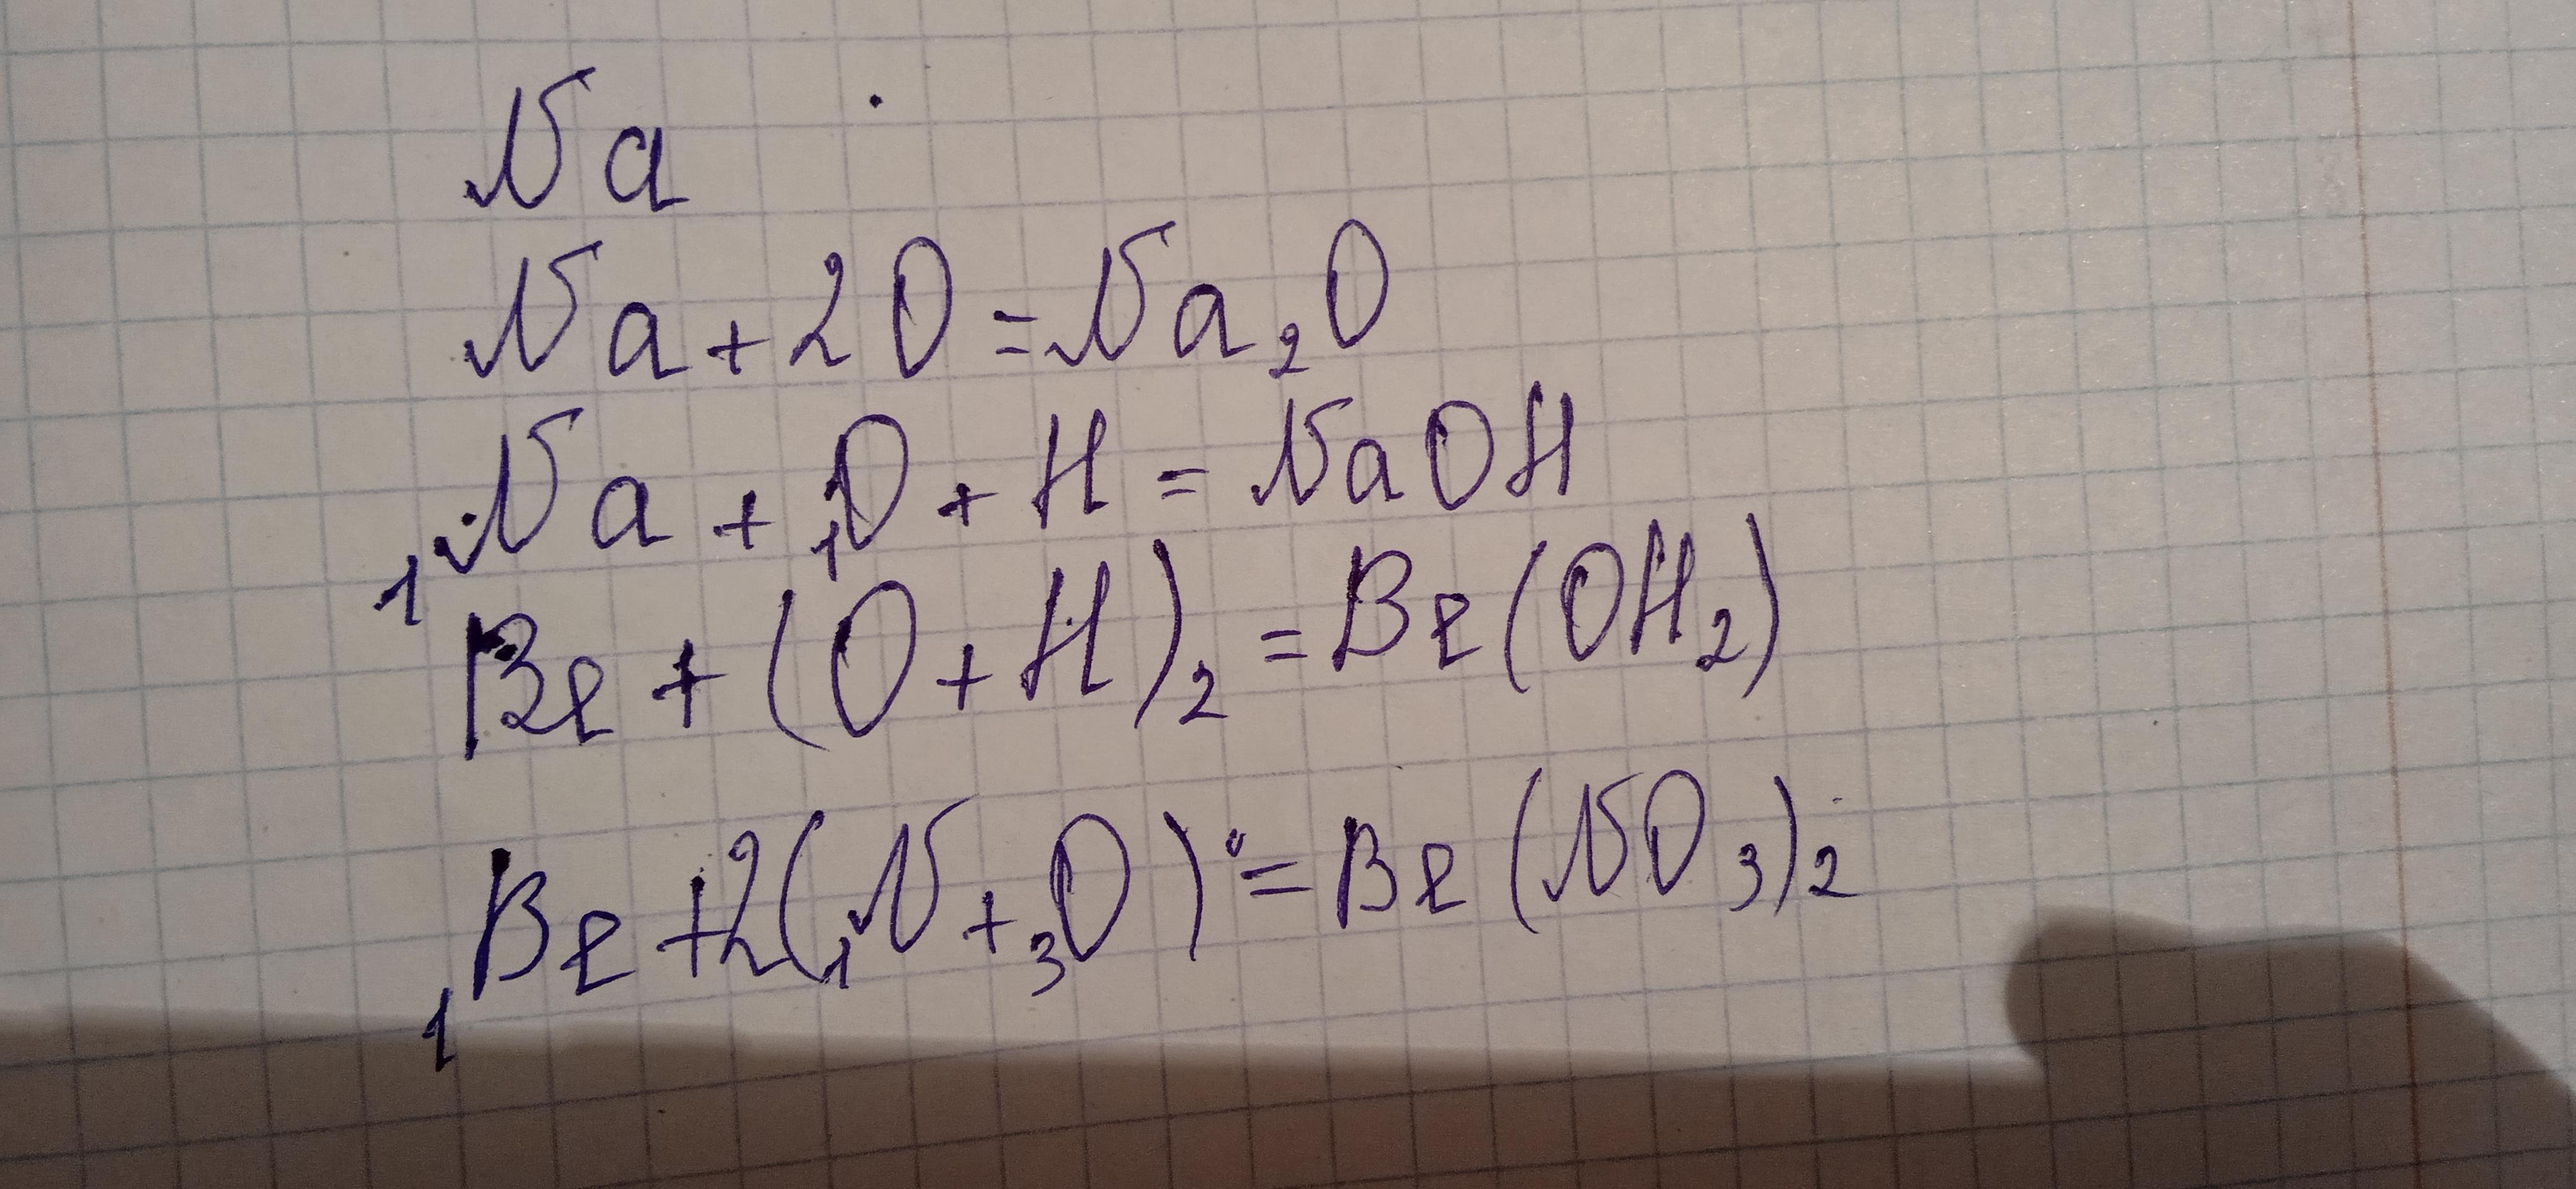 Na
Na + 2O = Na₂O
₁Na + ₁O + H = NaOH
Be + (O + H)₂ = Be(OH₂)
₁Be + 2(₁N + ₃O) = Be(NO₃)₂